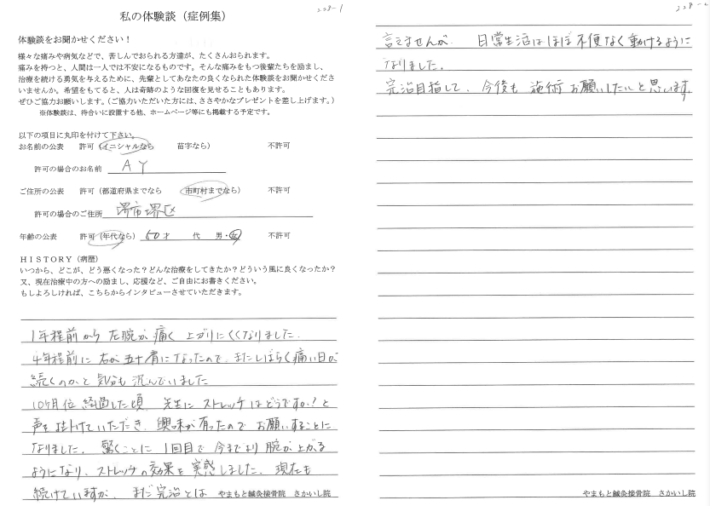 228-1
私の体験談（症例集）
体験談をお聞かせください！
様々な痛みや病気などで、苦しんでおられる方達が、たくさんおられます。
痛みを持つと、人間は一人では不安になるものです。そんな痛みをもつ後輩たちを励まし、
治療を続ける勇気を与えるために、先輩としてあなたの良くなられた体験談をお聞かせくださ
いませんか。希望をもてると、人は奇跡のような回復を見せることもあります。
ぜひご協力お願いします。（ご協力いただいた方には、ささやかなプレゼントを差し上げます。）
※体験談は、待合いに設置する他、ホームページ等にも掲載する予定です。
以下の項目に丸印を付けて下さい。
お名前の公表 許可（イニシャルなら 苗字なら） 不許可
許可の場合のお名前 A Y
ご住所の公表 許可（都道府県までなら 市町村までなら） 不許可
許可の場合のご住所 堺市堺区
年齢の公表 許可（年代なら） 50才 代 男・女 不許可
HISTORY（病歴）
いつから、どこが、どう悪くなった？どんな治療をしてきたか？どういう風に良くなったか？
又、現在治療中の方への励まし、応援など、ご自由にお書きください。
もしよろしければ、こちらからインタビューさせていただきます。
1年程前から 左腕が痛く 上がりにくくなりました。
4年程前に 右が五十肩になったので、またしばらく痛い日が
続くのかと 気分も 沈んでいました
10ヶ月位 経過した頃、先生に ストレッチはどうですか！と
声を掛けていただき、興味が有ったので お願いすることに
なりました。 驚くことに 1回目で 今までより 腕が上がる
ようになり、ストレッチの効果を 実感しました。 現在も
続けていますが、 まだ完治とは
やまもと鍼灸接骨院 さかいし院
228-2
言えませんが、 日常生活はほぼ不便なく動けるように
なりました。
完治目指して、今後も 施術お願いしたいと思います
やまもと鍼灸接骨院 さかいし院